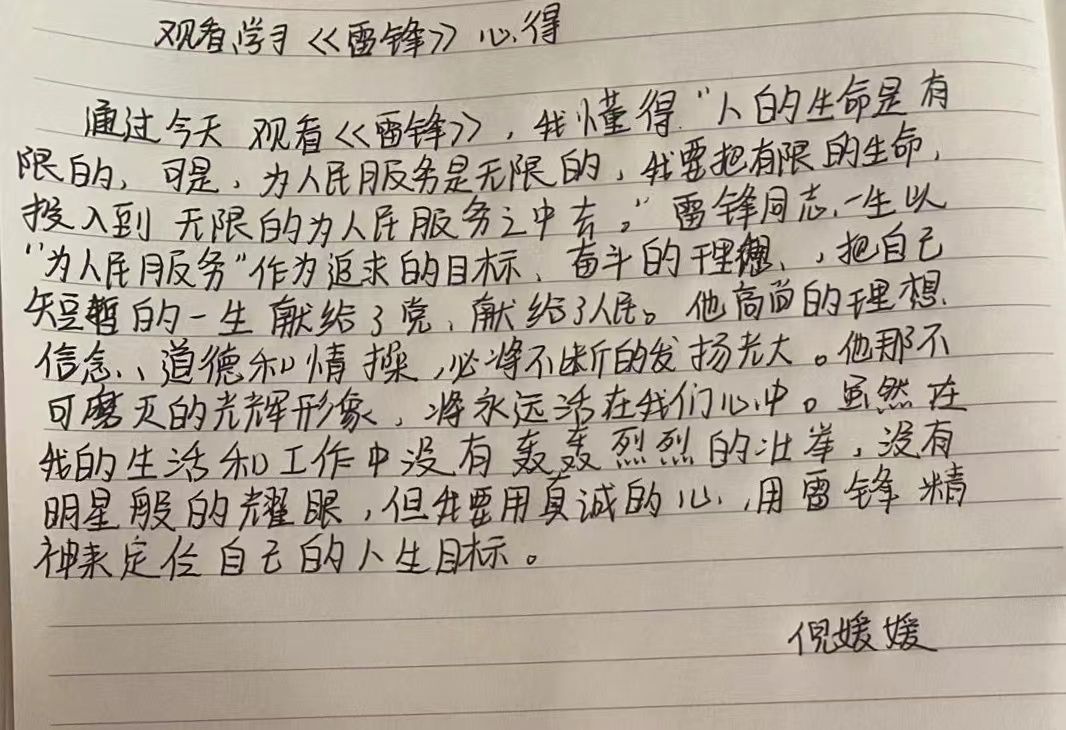 观看学习《雷锋》心得
通过今天观看《雷锋》,我懂得“人的生命是有
限的,可是,为人民服务是无限的,我要把有限的生命,
投入到无限的为人民服务之中去。”雷锋同志一生以
“为人民服务”作为追求的目标、奋斗的理想、,把自己
短暂的一生献给了党、献给了人民。他高尚的理想、
信念、、道德和情操,必将不断的发扬光大。他那不
可磨灭的光辉形象,将永远活在我们心中。虽然在
我的生活和工作中没有轰轰烈烈的壮举,没有
明星般的耀眼,但我要用真诚的心,用雷锋精
神来定位自己的人生目标。
倪媛媛